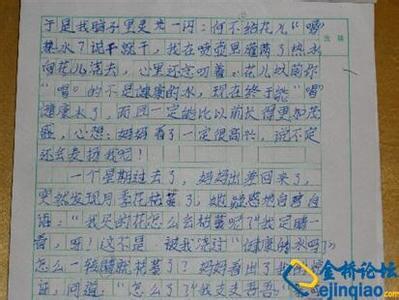 于是我脑子里灵光一闪:何不给花儿“喝”
热水?说干就干,我在喷壶里灌满了热水
向花儿浇去,心里还念叨着:花儿以前你
“喝”的不是健康的水,现在终于能“喝”
健康水了,而且一定能比以前长得更加茂
盛,心想:妈妈看了一定很高兴,说不定
还会表扬我呢!
一个星期过去了,妈妈出差回来了,
突然发现月季花枯萎了,她疑惑地自言自
语:“我买的花怎么会枯萎呢?我定睛一
看,呀!这不是被我浇过“健康的水吗?
怎么一转眼就枯萎了?妈妈看出了我的
证,问道:“怎么了?我支支吾吾
金桥论坛
ejinqiao.com